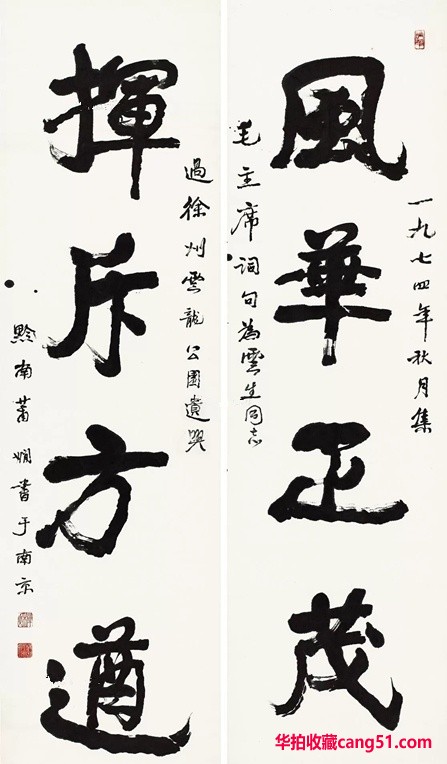 一九七四年秋月集
風華正茂
毛主席詞句為雲生同志
過徐州雲龍公園遺
揮斥方遒
黔南蕭嫻書于南京
华拍收藏cang51.com